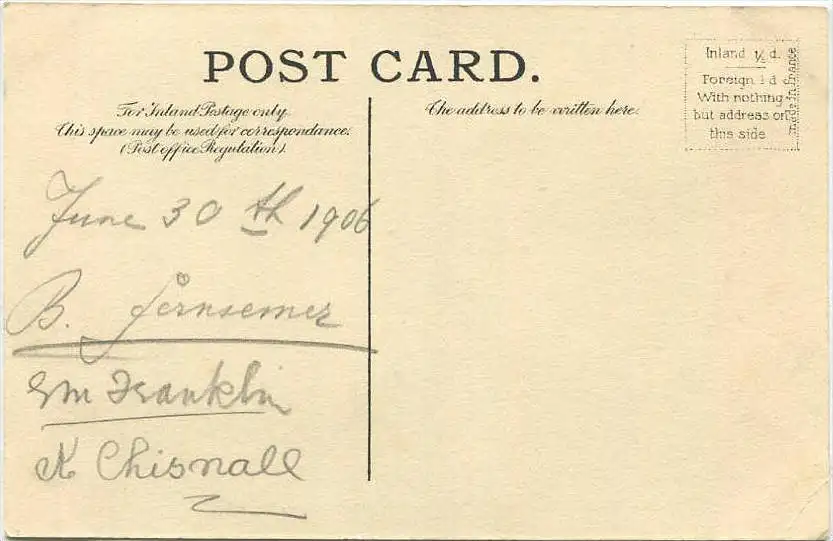 POST CARD.
For Inland Postage only
This space may be used for correspondance.
(Post office Regulation).
The address to be written here.
Inland ½ d.
Foreign 1 d
With nothing
but address on
this side
made in france
June 30 th 1906
B.
Franklin
K Chisnall